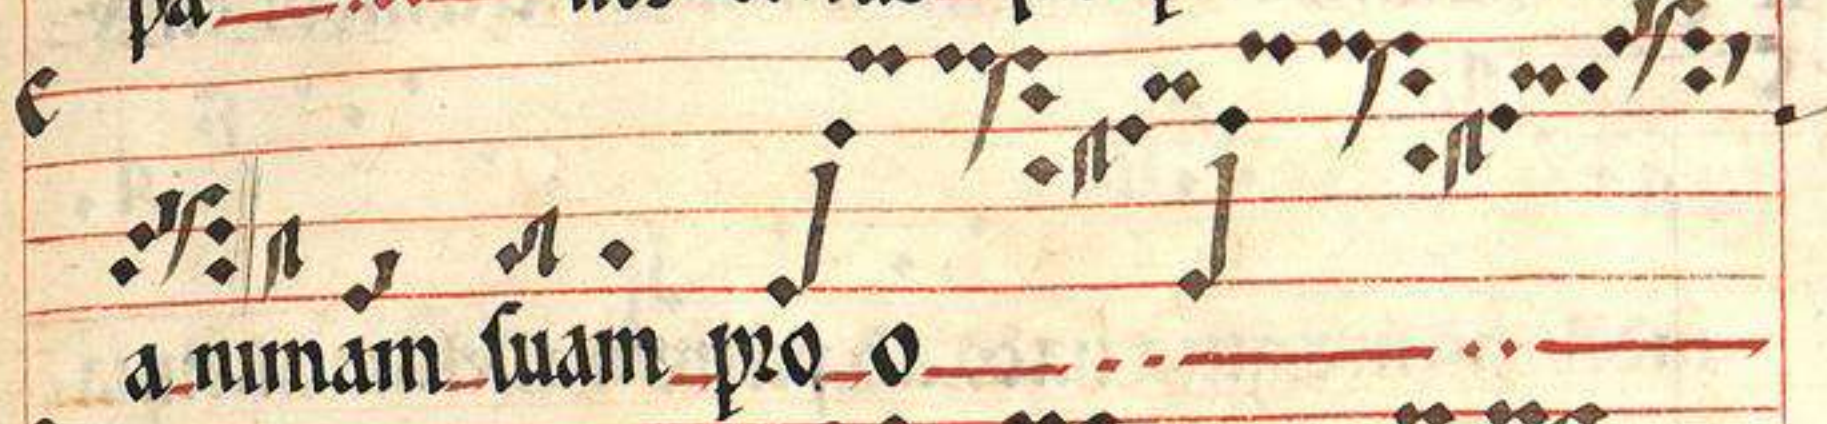 pa
animam suam pro o